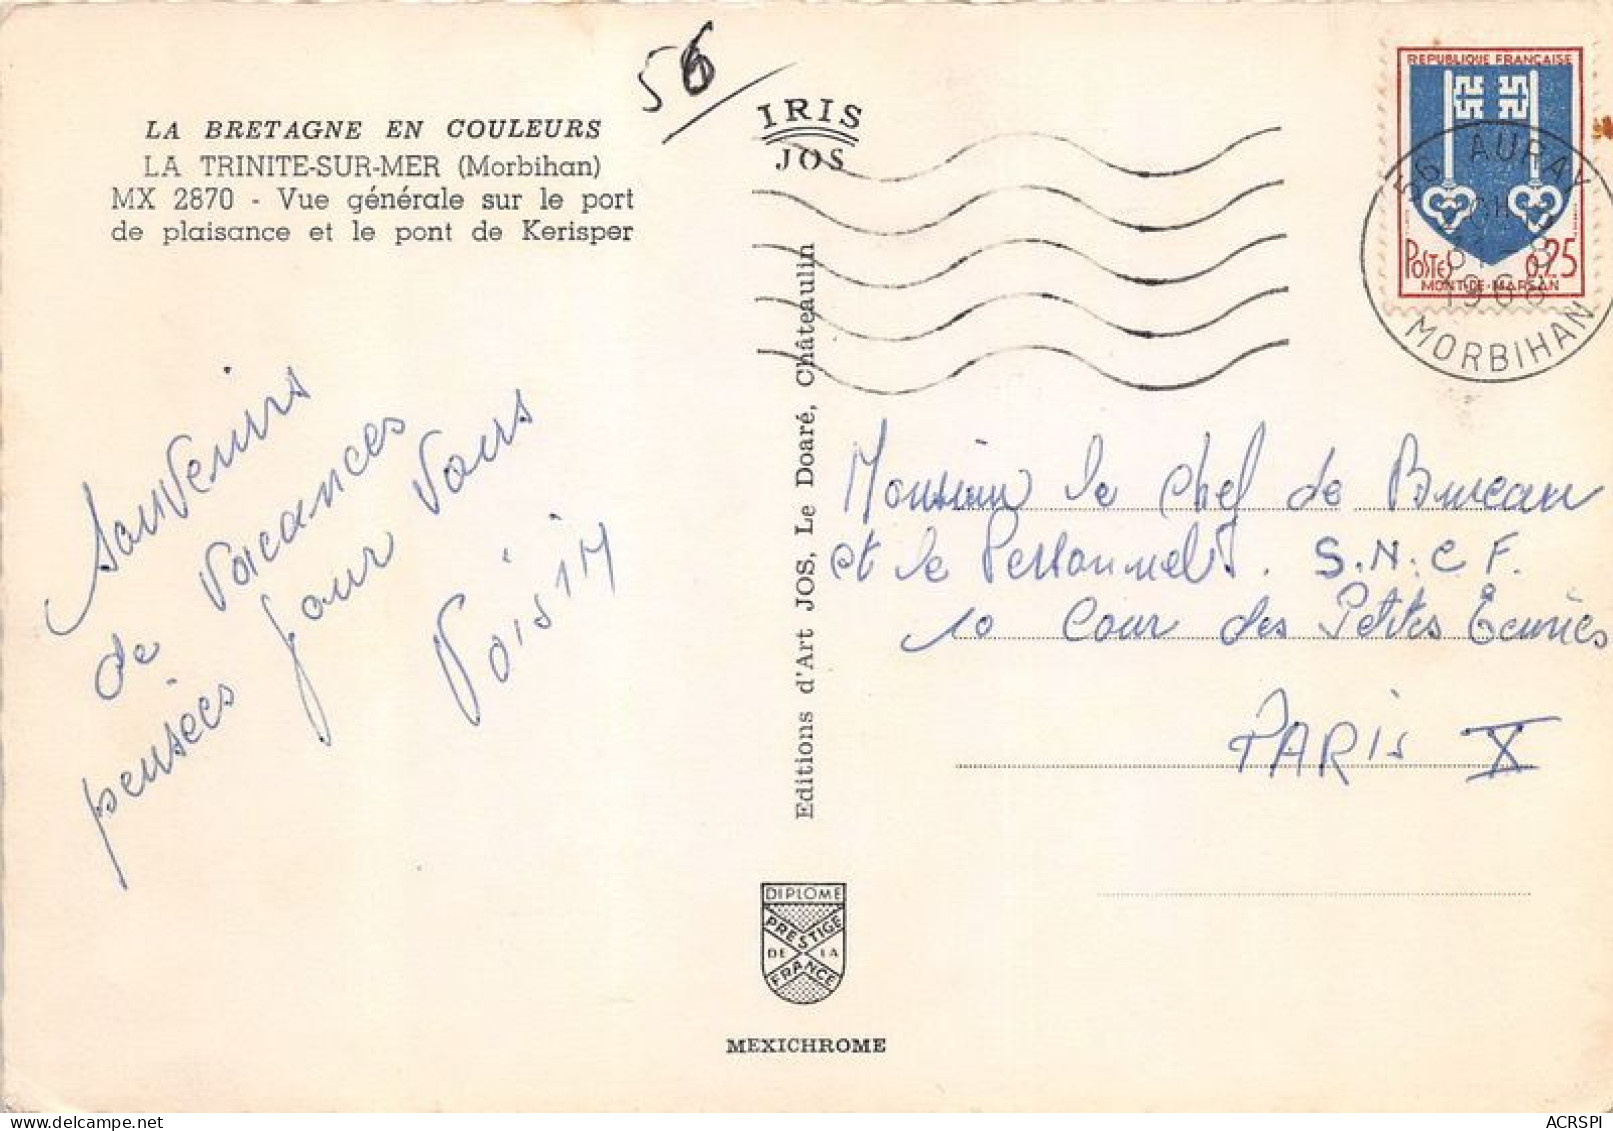 56
LA BRETAGNE EN COULEURS
LA TRINITE-SUR-MER (Morbihan)
MX 2870 - Vue générale sur le port
de plaisance et le pont de Kerisper
IRIS
JOS
REPUBLIQUE FRANÇAISE
POSTES 0,25
MONT-DE-MARSAN
56 AURAY
1966
MORBIHAN
Souvenirs
de vacances
pensées pour vous
Voisin
Editions d'Art JOS, Le Doaré, Châteaulin
Monsieur le Chef de Bureau
et le Personnel. S.N.C.F.
10 Cour des Petites Ecuries
PARIS X
DIPLOME
PRESTIGE
DE LA
FRANCE
MEXICHROME
ACRSPI